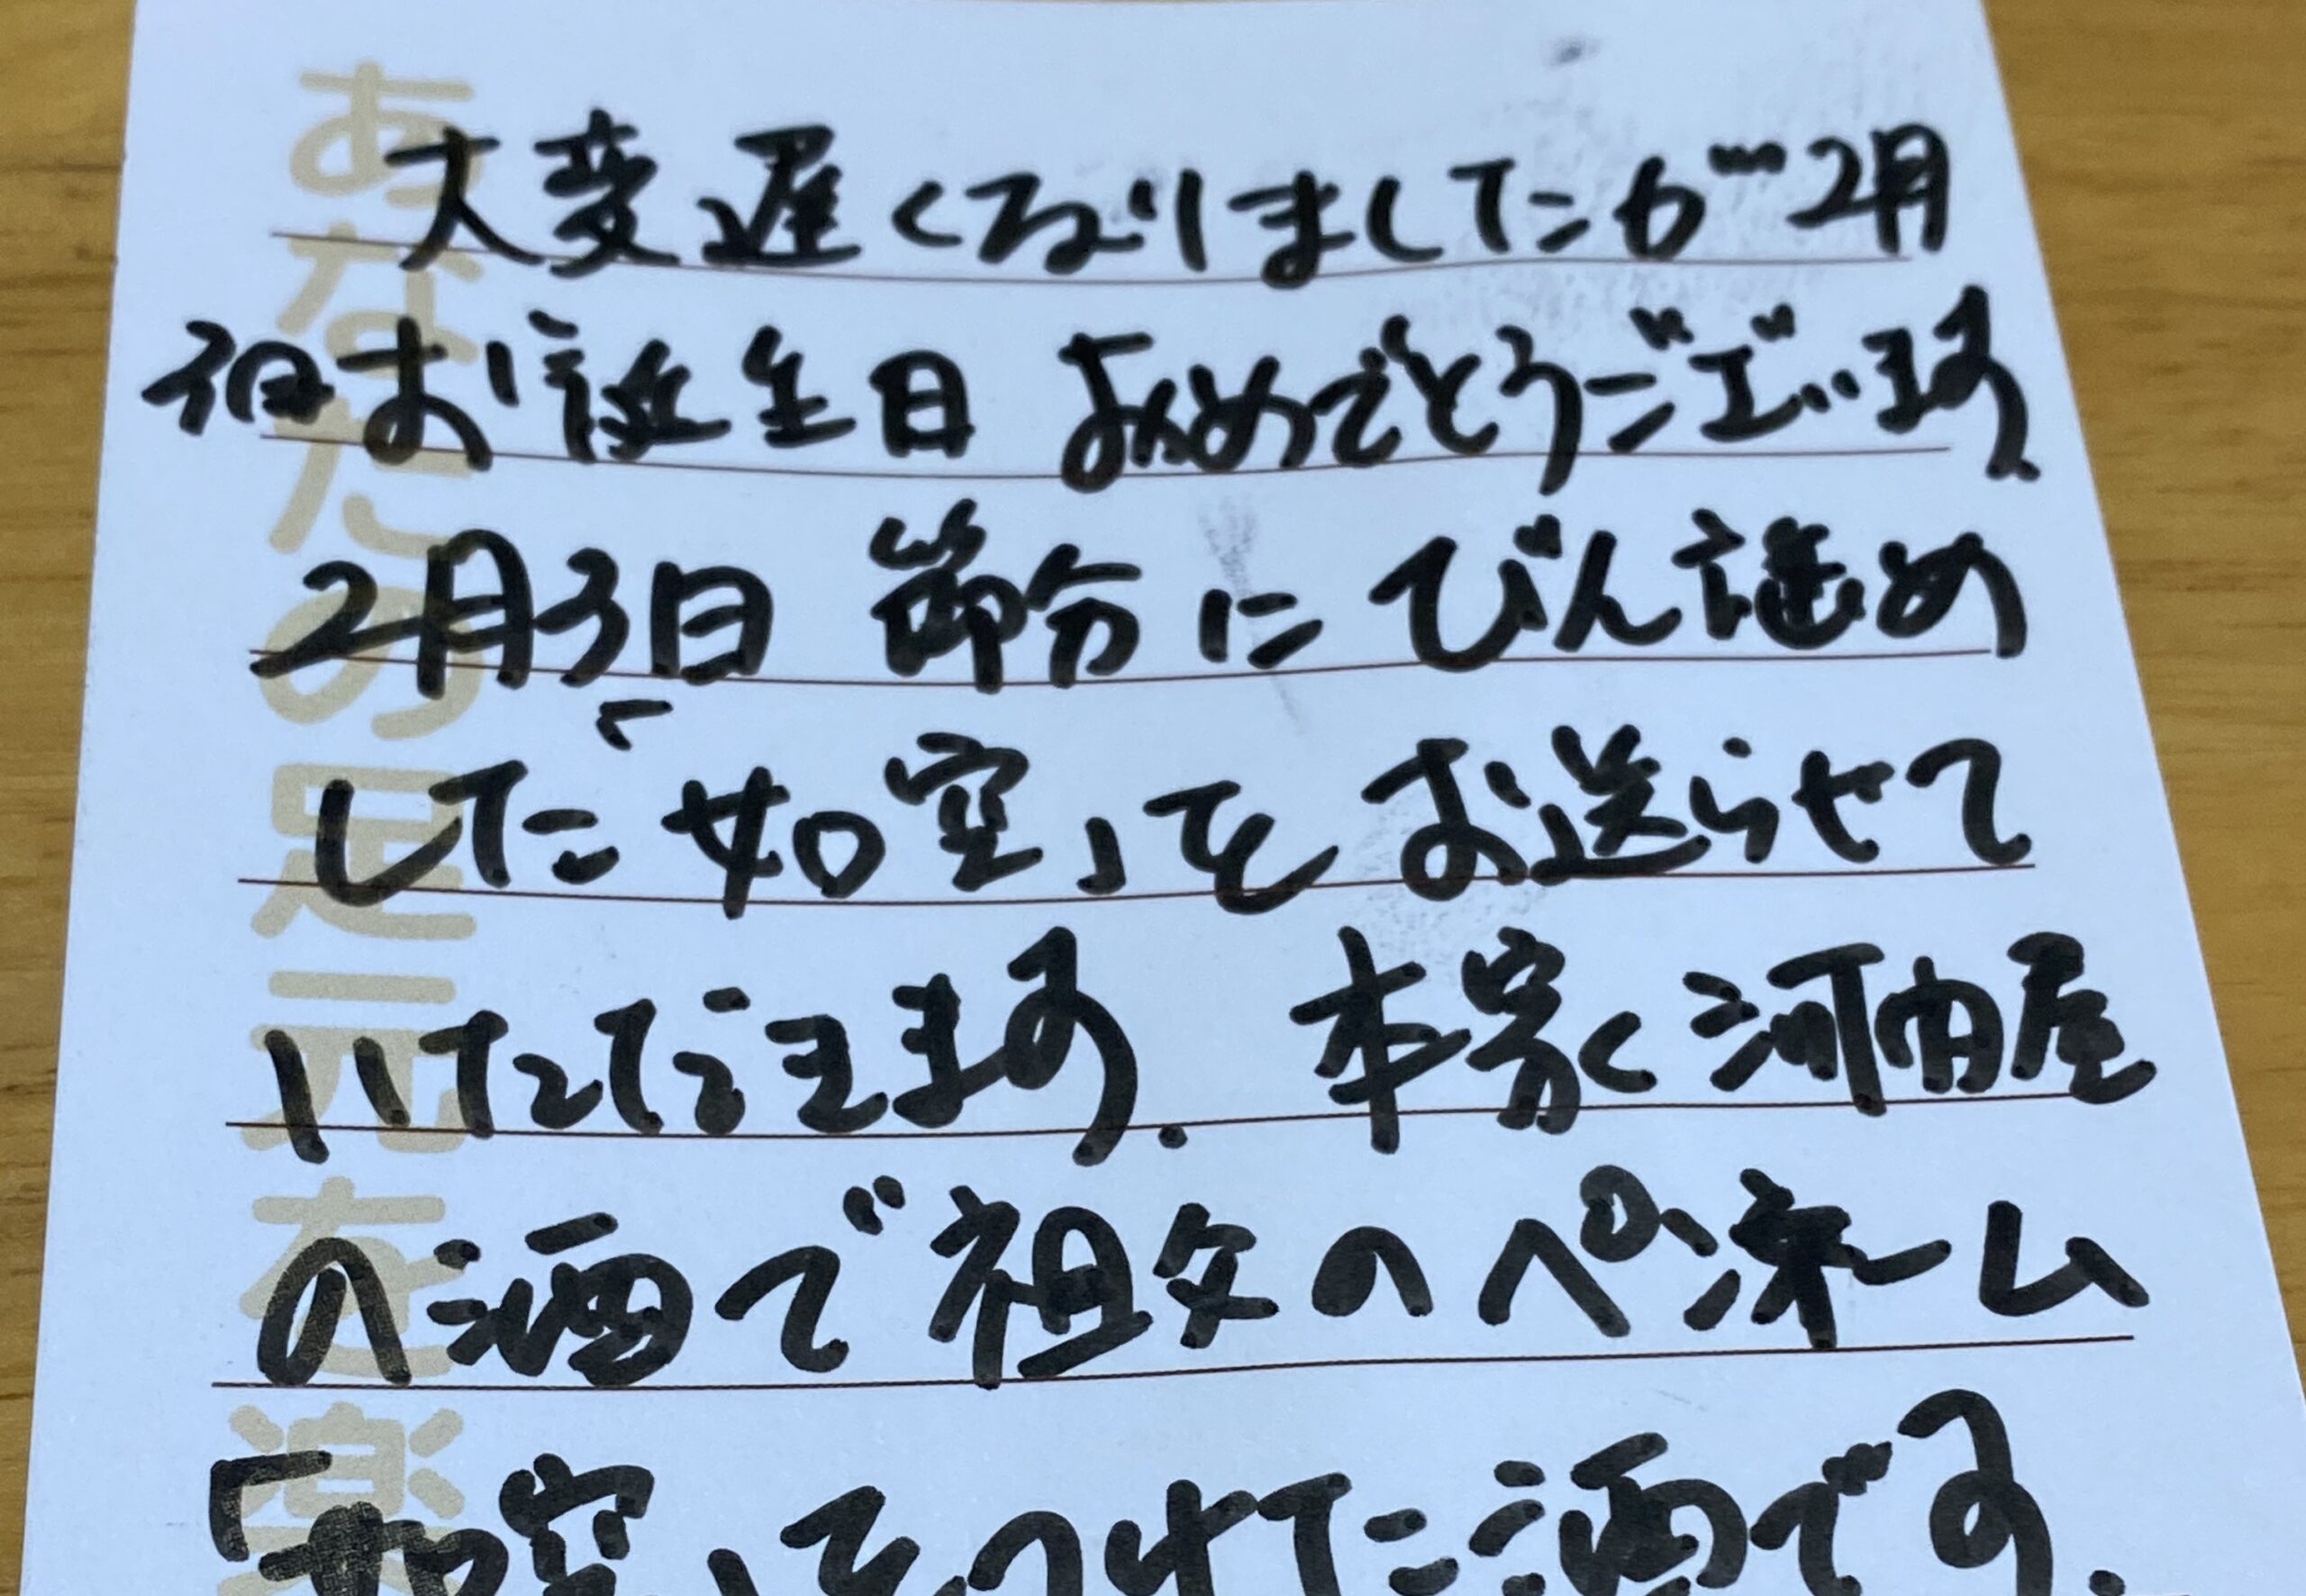 大変遅くなりましたが2月
3日お誕生日おめでとうございます
2月3日 節分にびん詰め
した「如空」をお送らせて
いただきます. 本家く河内屋
の酒で祖父のペンネーム
「如空」をつけた酒です.
あなたの足元を楽